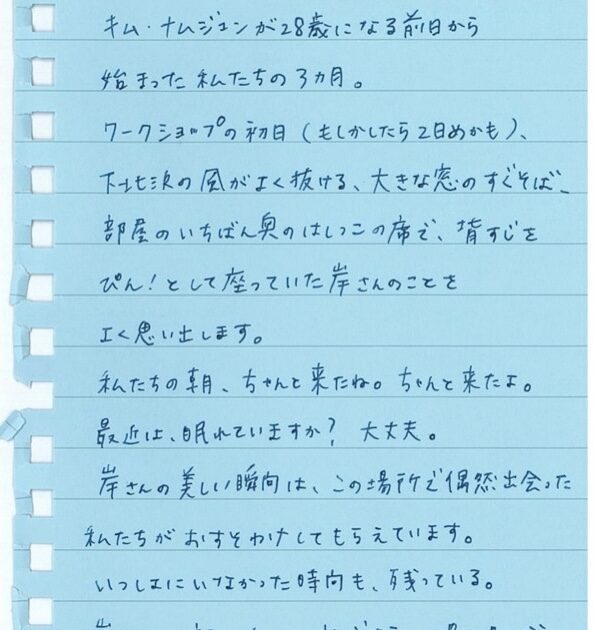 キム・ナムジュンが28歳になる前日から
始まった私たちの3カ月。
ワークショップの初日(もしかしたら2日めかも)、
下北沢の風がよく抜ける、大きな窓のすぐそば、
部屋のいちばん奥のはしっこの席で、背すじを
ぴん!として座っていた岸さんのことを
よく思い出します。
私たちの朝、ちゃんと来たね。ちゃんと来たよ。
最近は、眠れていますか? 大丈夫。
岸さんの美しい瞬間は、この場所で偶然出会った
私たちがおすそわけしてもらえています。
いっしょにいなかった時間も、残っている。